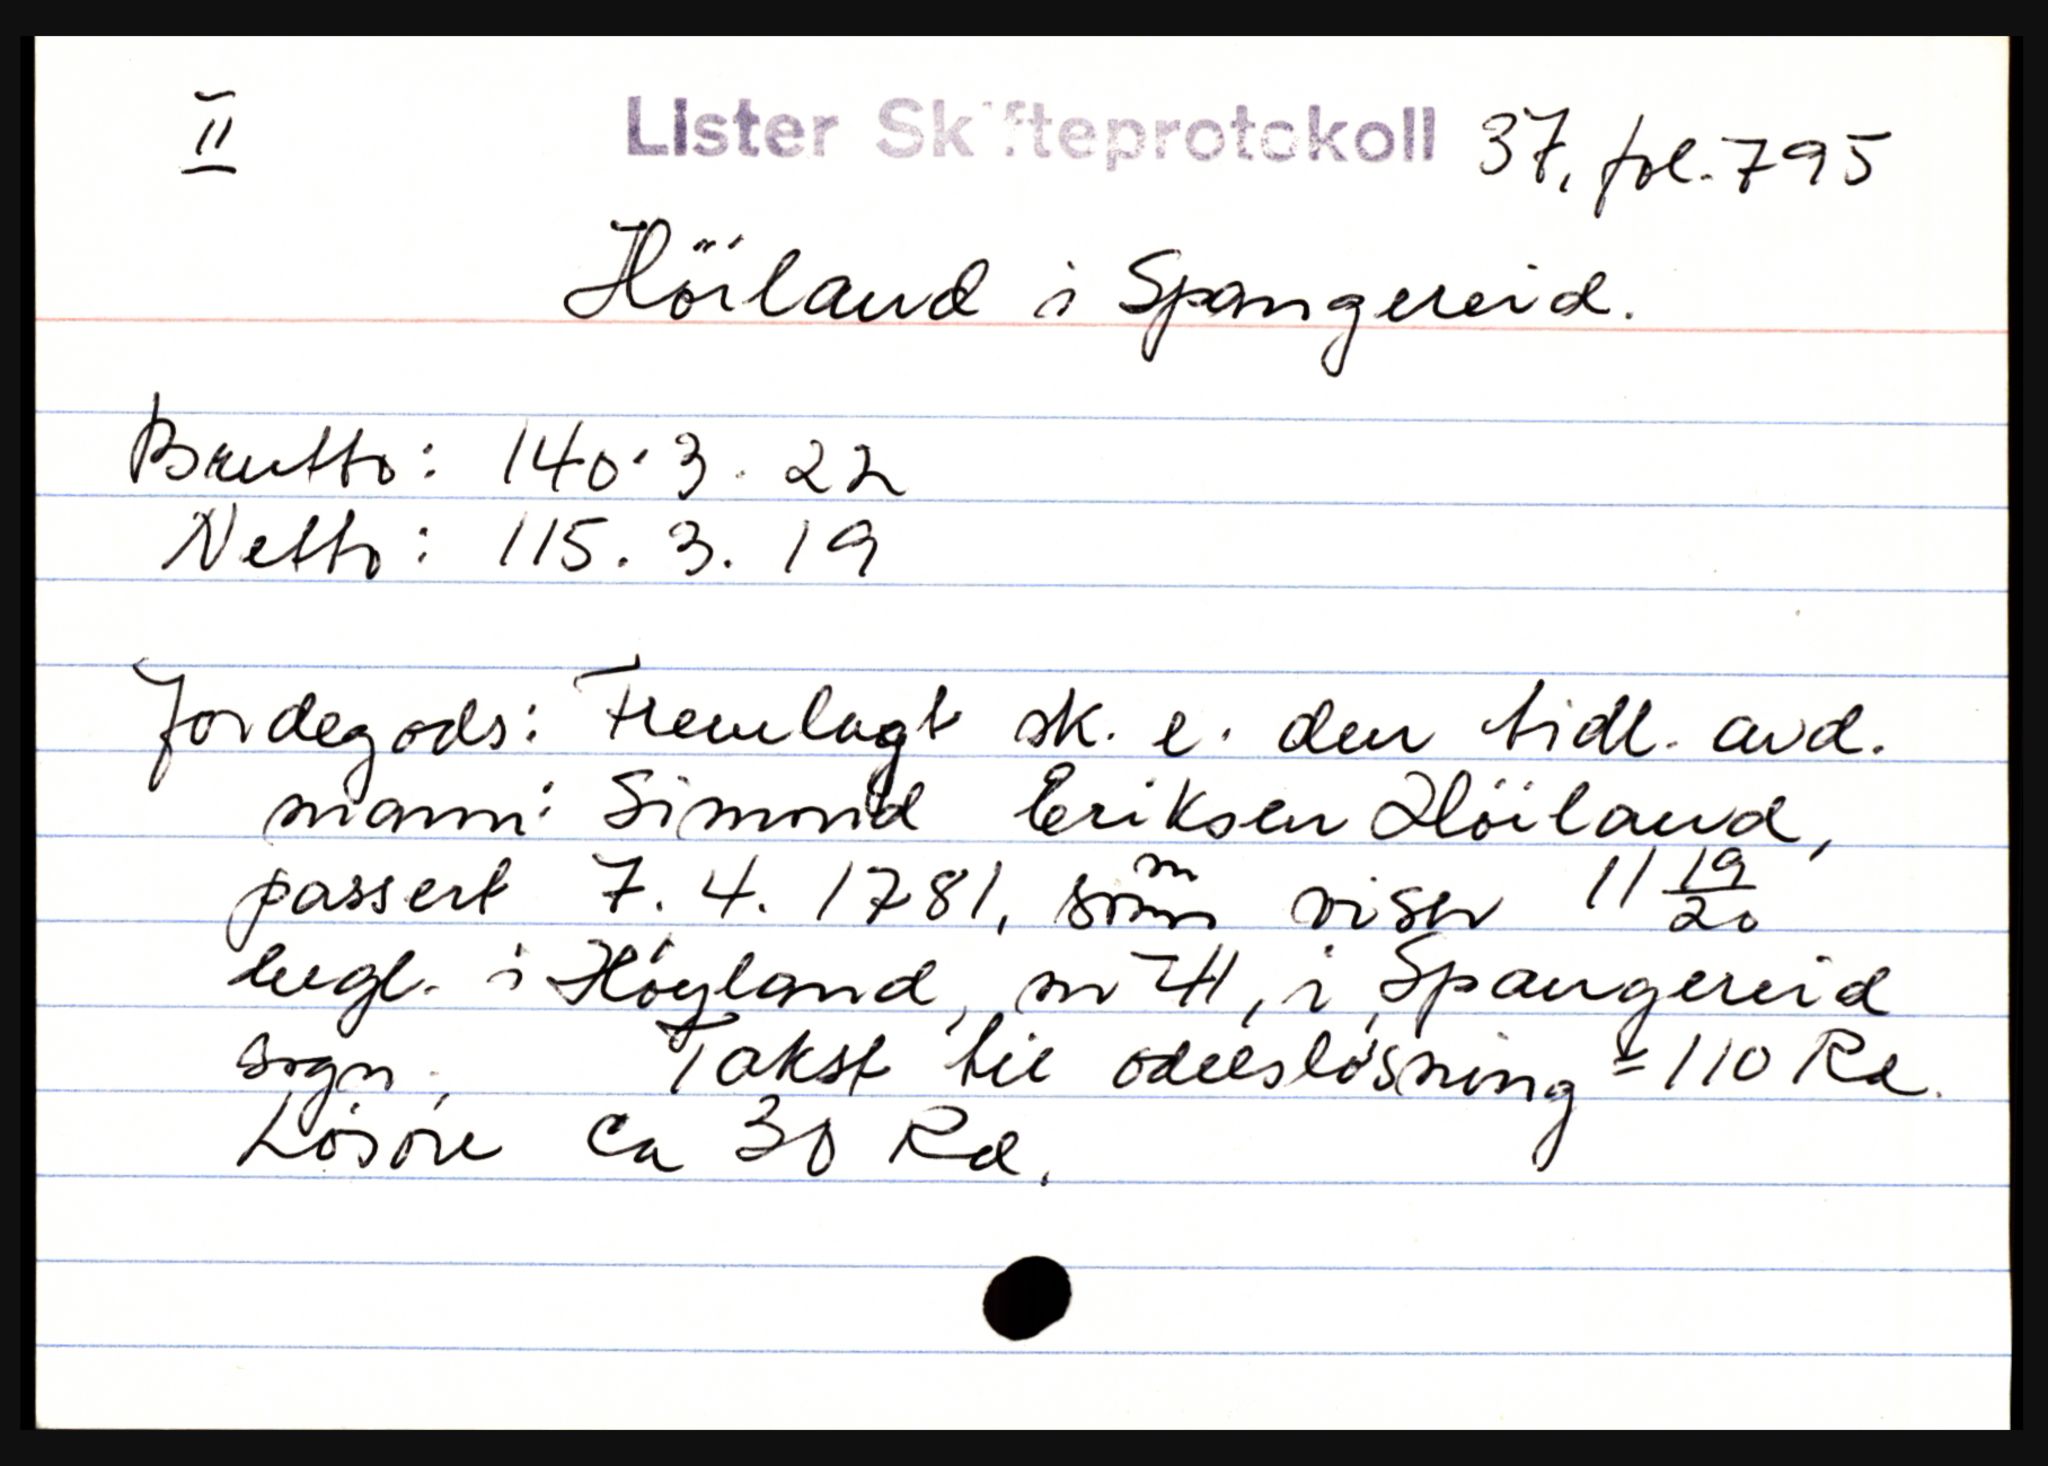 II
Lister Skifteprotokoll 37, fol. 795
Höiland i Spangereid.
Brutto: 140. 3. 22
Netto: 115. 3. 19
Jordegods: Fremlagt sk. e. den tidl. avd.
mann: Simond Eriksen Höiland,
passert 7. 4. 1781, som viser 11 19/20
eegl. i Höyland, nr 41, i Spangereid
sogn. Takst til odelslösning = 110 Rd.
Lösöre ca 30 Rd.